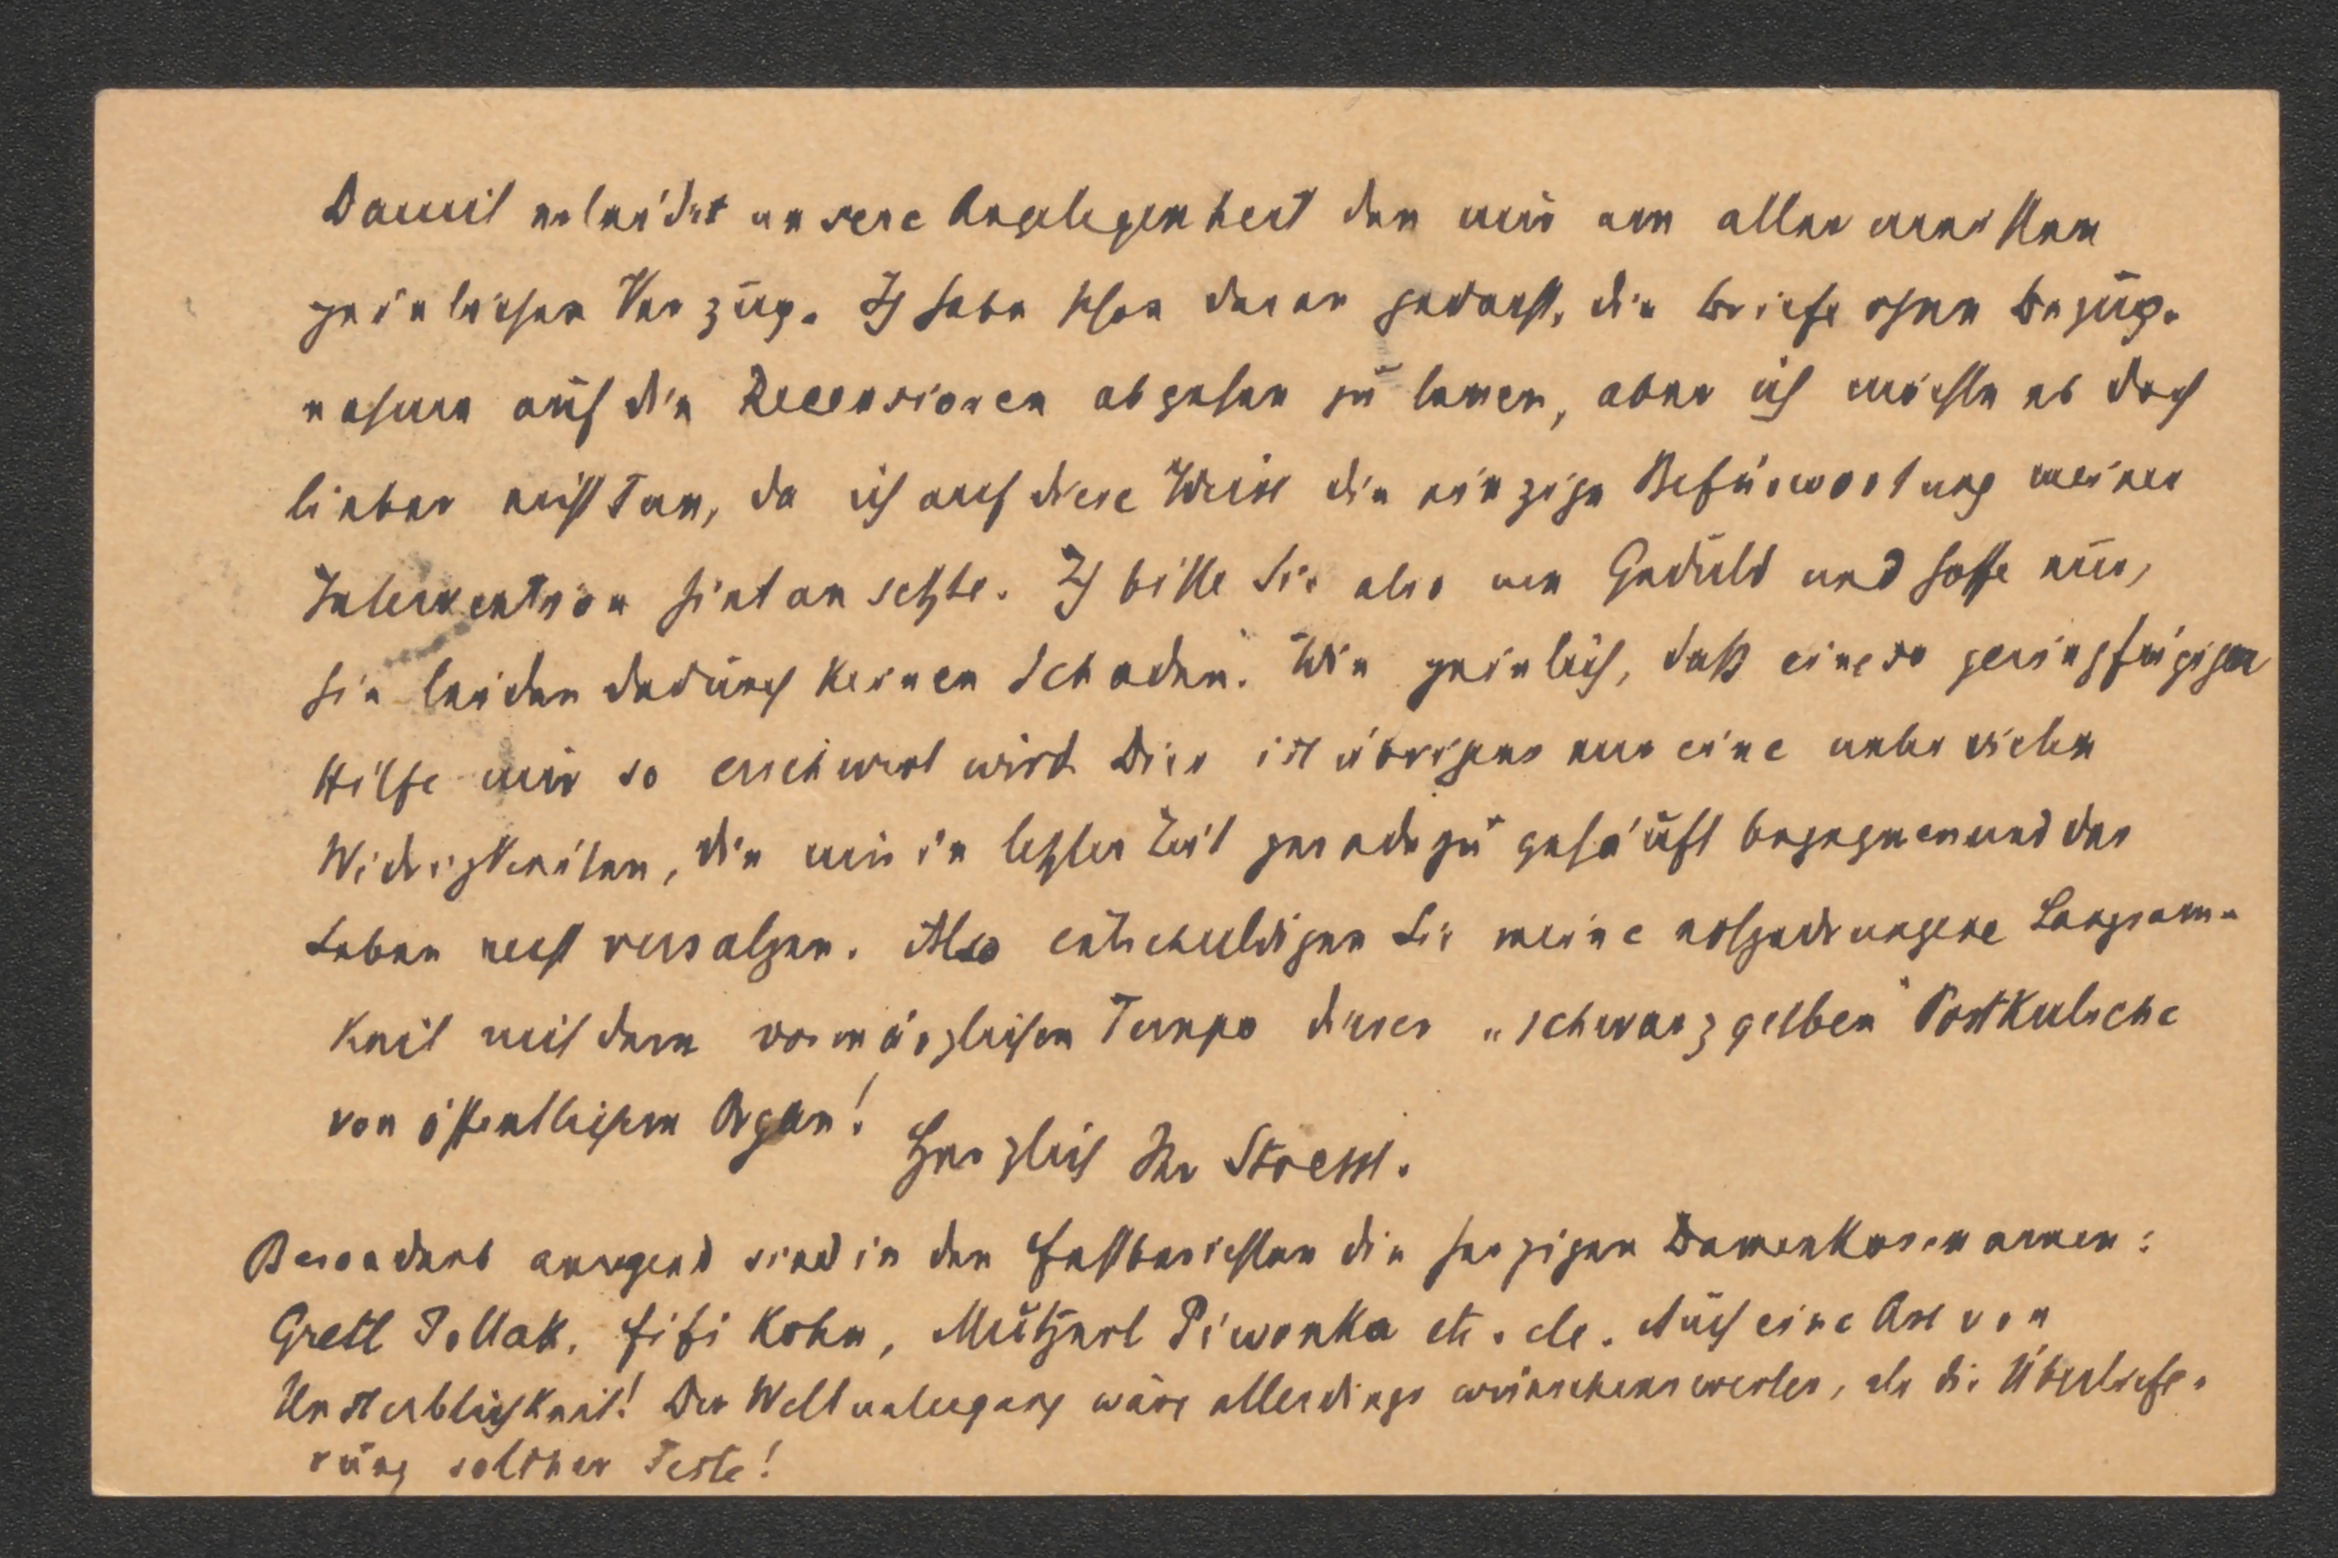 Damit erleidet unsere Angelegenheit den mir am allermeisten
peinlichen Verzug. Ich habe schon daran gedacht, die Briefe ohne Bezug-
nahme auf die Recensionen abgehen zu lassen, aber ich möchte es doch
lieber nicht tun, da ich auf diese Weise die einzige Befürwortung meiner
Intervention hintan setzte. Ich bitte Sie also um Geduld und hoffe nur,
Sie leiden dadurch keinen Schaden. Wie peinlich, daß eine so geringfügige
Hilfe mir so erschwert wird. Dies ist übrigens nur eine unter vielen
Widrigkeiten, die mir in letzter Zeit geradezu gehäuft begegnen und das
Leben recht versalzen. Also entschuldigen Sie meine notgedrungene Langsam-
keit mit dem vormärzlichen Tempo dieser „schwarzgelben" Postkutsche
von öffentlichem Organ!
Herzlich Ihr Stoessl.
Besonders anregend sind in den Festberichten die herzigen Damenkosenamen:
Gretl Pollak, Fifi Kohn, Mutzerl Piwonka etc. etc. Auch eine Art von
Unsterblichkeit! Der Weltuntergang wäre allerdings wünschenswerter, als die Überliefe-
rung solcher Feste!